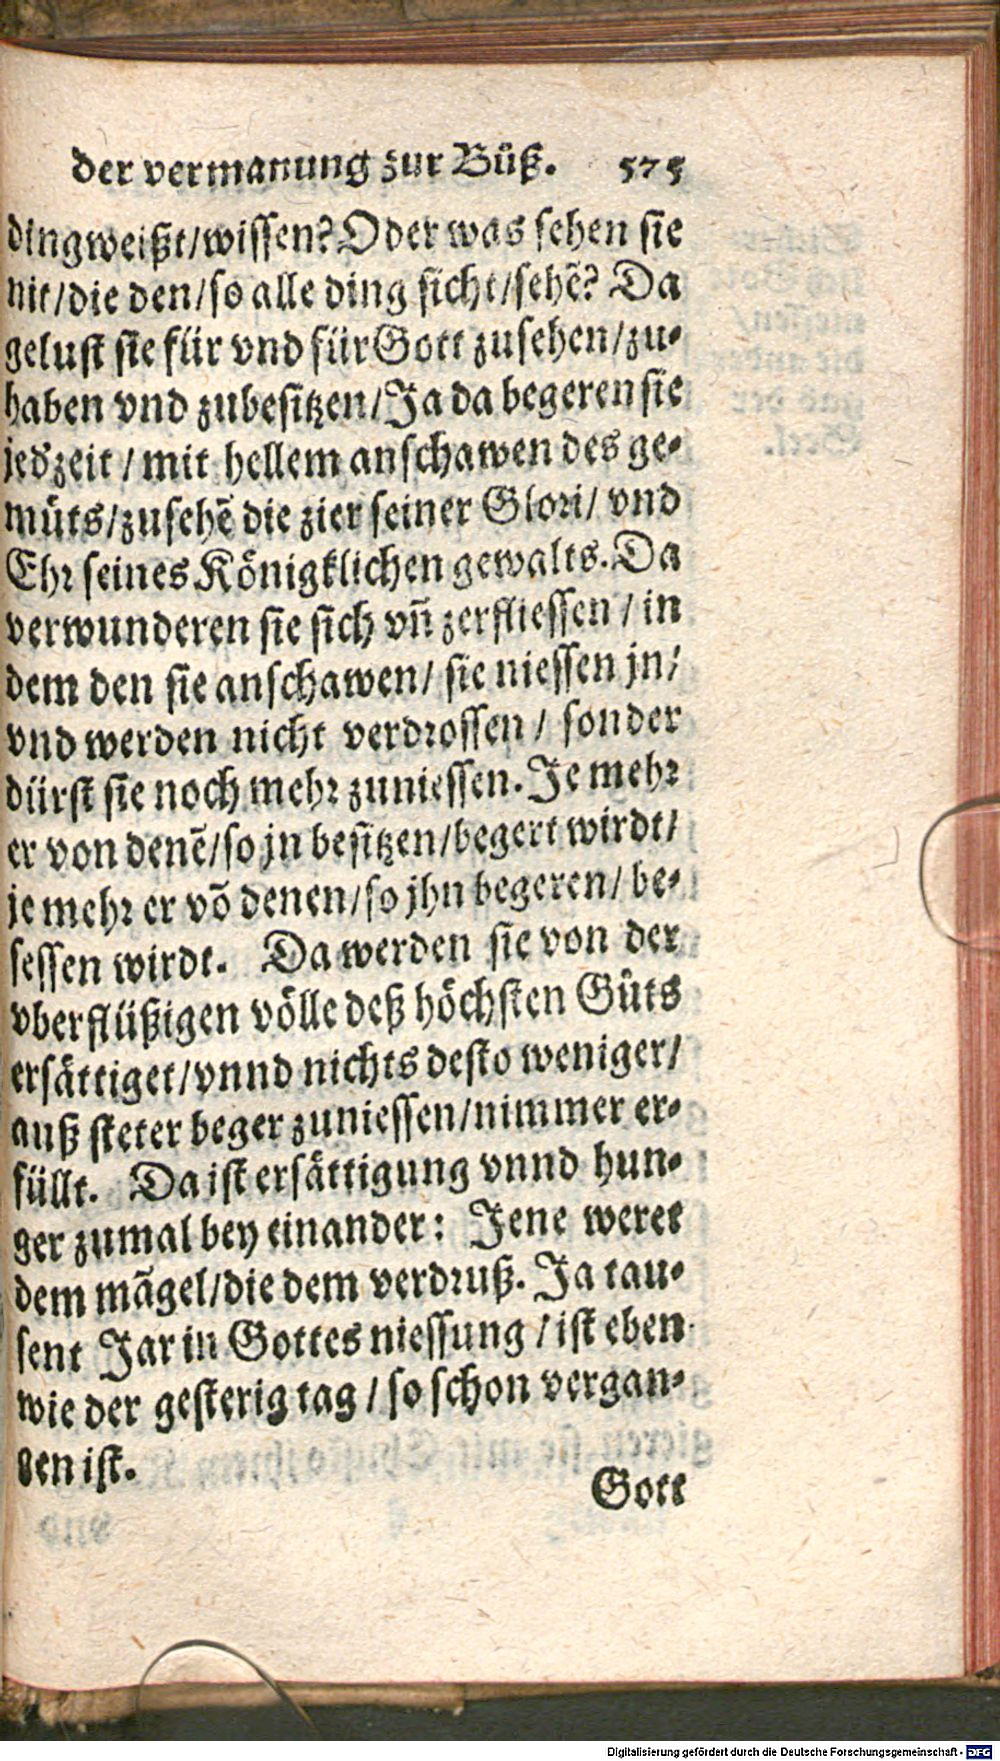 der vermanung zur Bůß. 575
ding weißt/wissen? Oder was sehen sie
nit/die den/so alle ding sicht/sehẽ? Da
gelust sie für vnd für Gott zusehen/zu-
haben vnd zubesitzen/Ja da begeren sie
jedszeit / mit hellem anschawen des ge-
můts/zusehẽ die zier seiner Glori/ vnd
Ehr seines Königklichen gewalts. Da
verwunderen sie sich vñ zerfliessen / in
dem den sie anschawen/ sie niessen jn/
vnd werden nicht verdrossen / sonder
dürst sie noch mehr zuniessen. Je mehr
er von denẽ/so jn besitzen/begert wirdt/
je mehr er võ denen/so jhn begeren/ be-
sessen wirdt. Da werden sie von der
vberflüßigen völle deß höchsten Gůts
ersättiget/vnnd nichts desto weniger/
auß steter beger zuniessen/nimmer er-
füllt. Da ist ersättigung vnnd hun-
ger zumal bey einander: Jene weret
dem mãgel/die dem verdruß. Ja tau-
sent Jar in Gottes niessung / ist eben
wie der gesterig tag / so schon vergan-
gen ist.
Gott
Digitalisierung gefördert durch die Deutsche Forschungsgemeinschaft - DFG